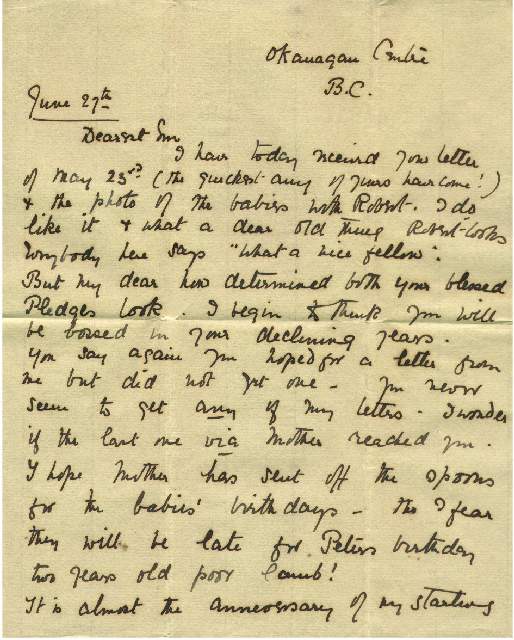 Okanagan Centre
B.C.
June 27th
Dearest Em
I have today received your letter
of May 23rd (the quickest any of yours have come!)
& the photo of the babies with Robert. I do
like it & what a dear old thing Robert looks
Everybody here says "What a nice fellow".
But my dear how determined both your blessed
Pledges look. I begin to think you will
be bossed in your declining years.
You say again you hoped for a letter from
me but did not get one - you never
seem to get any of my letters - I wonder
if the last one via Mother reached you.
I hope Mother has sent off the spoons
for the babies' birthdays - tho I fear
they will be late for Peters birthday
two years old poor lamb!
It is almost the anneversary of my starting